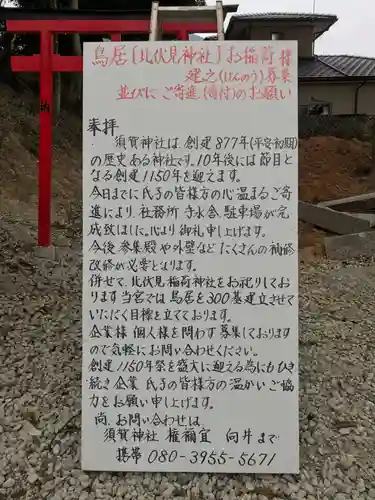 鳥居〔北伏見稲荷神社〕お稲荷様
建之(けんのう)募集
並びにご寄進(寄付)のお願い
奉拝
須賀神社は創建877年(平安初期)
の歴史ある神社です。10年後には節目と
なる創建1150年を迎えます。
今日までに氏子の皆様方の心温まるご寄
進により、社務所 手水舎、駐車場が完
成致しました。心より御礼申し上げます。
今後 参集殿や外壁など たくさんの補修
改修が必要となります。
併せて、北伏見稲荷神社をお祀りしてお
ります当宮では鳥居を300基建立させて
いただく目標を立てております。
企業様 個人様を問わず募集しております
ので気軽にお問い合わせください。
創建1150年祭を盛大に迎える為にもひき
続き企業 氏子の皆様方の温かいご協
力をお願い申し上げます。
尚、お問い合わせは、
須賀神社 権禰宜 向井まで
携帯 080-3955-5671